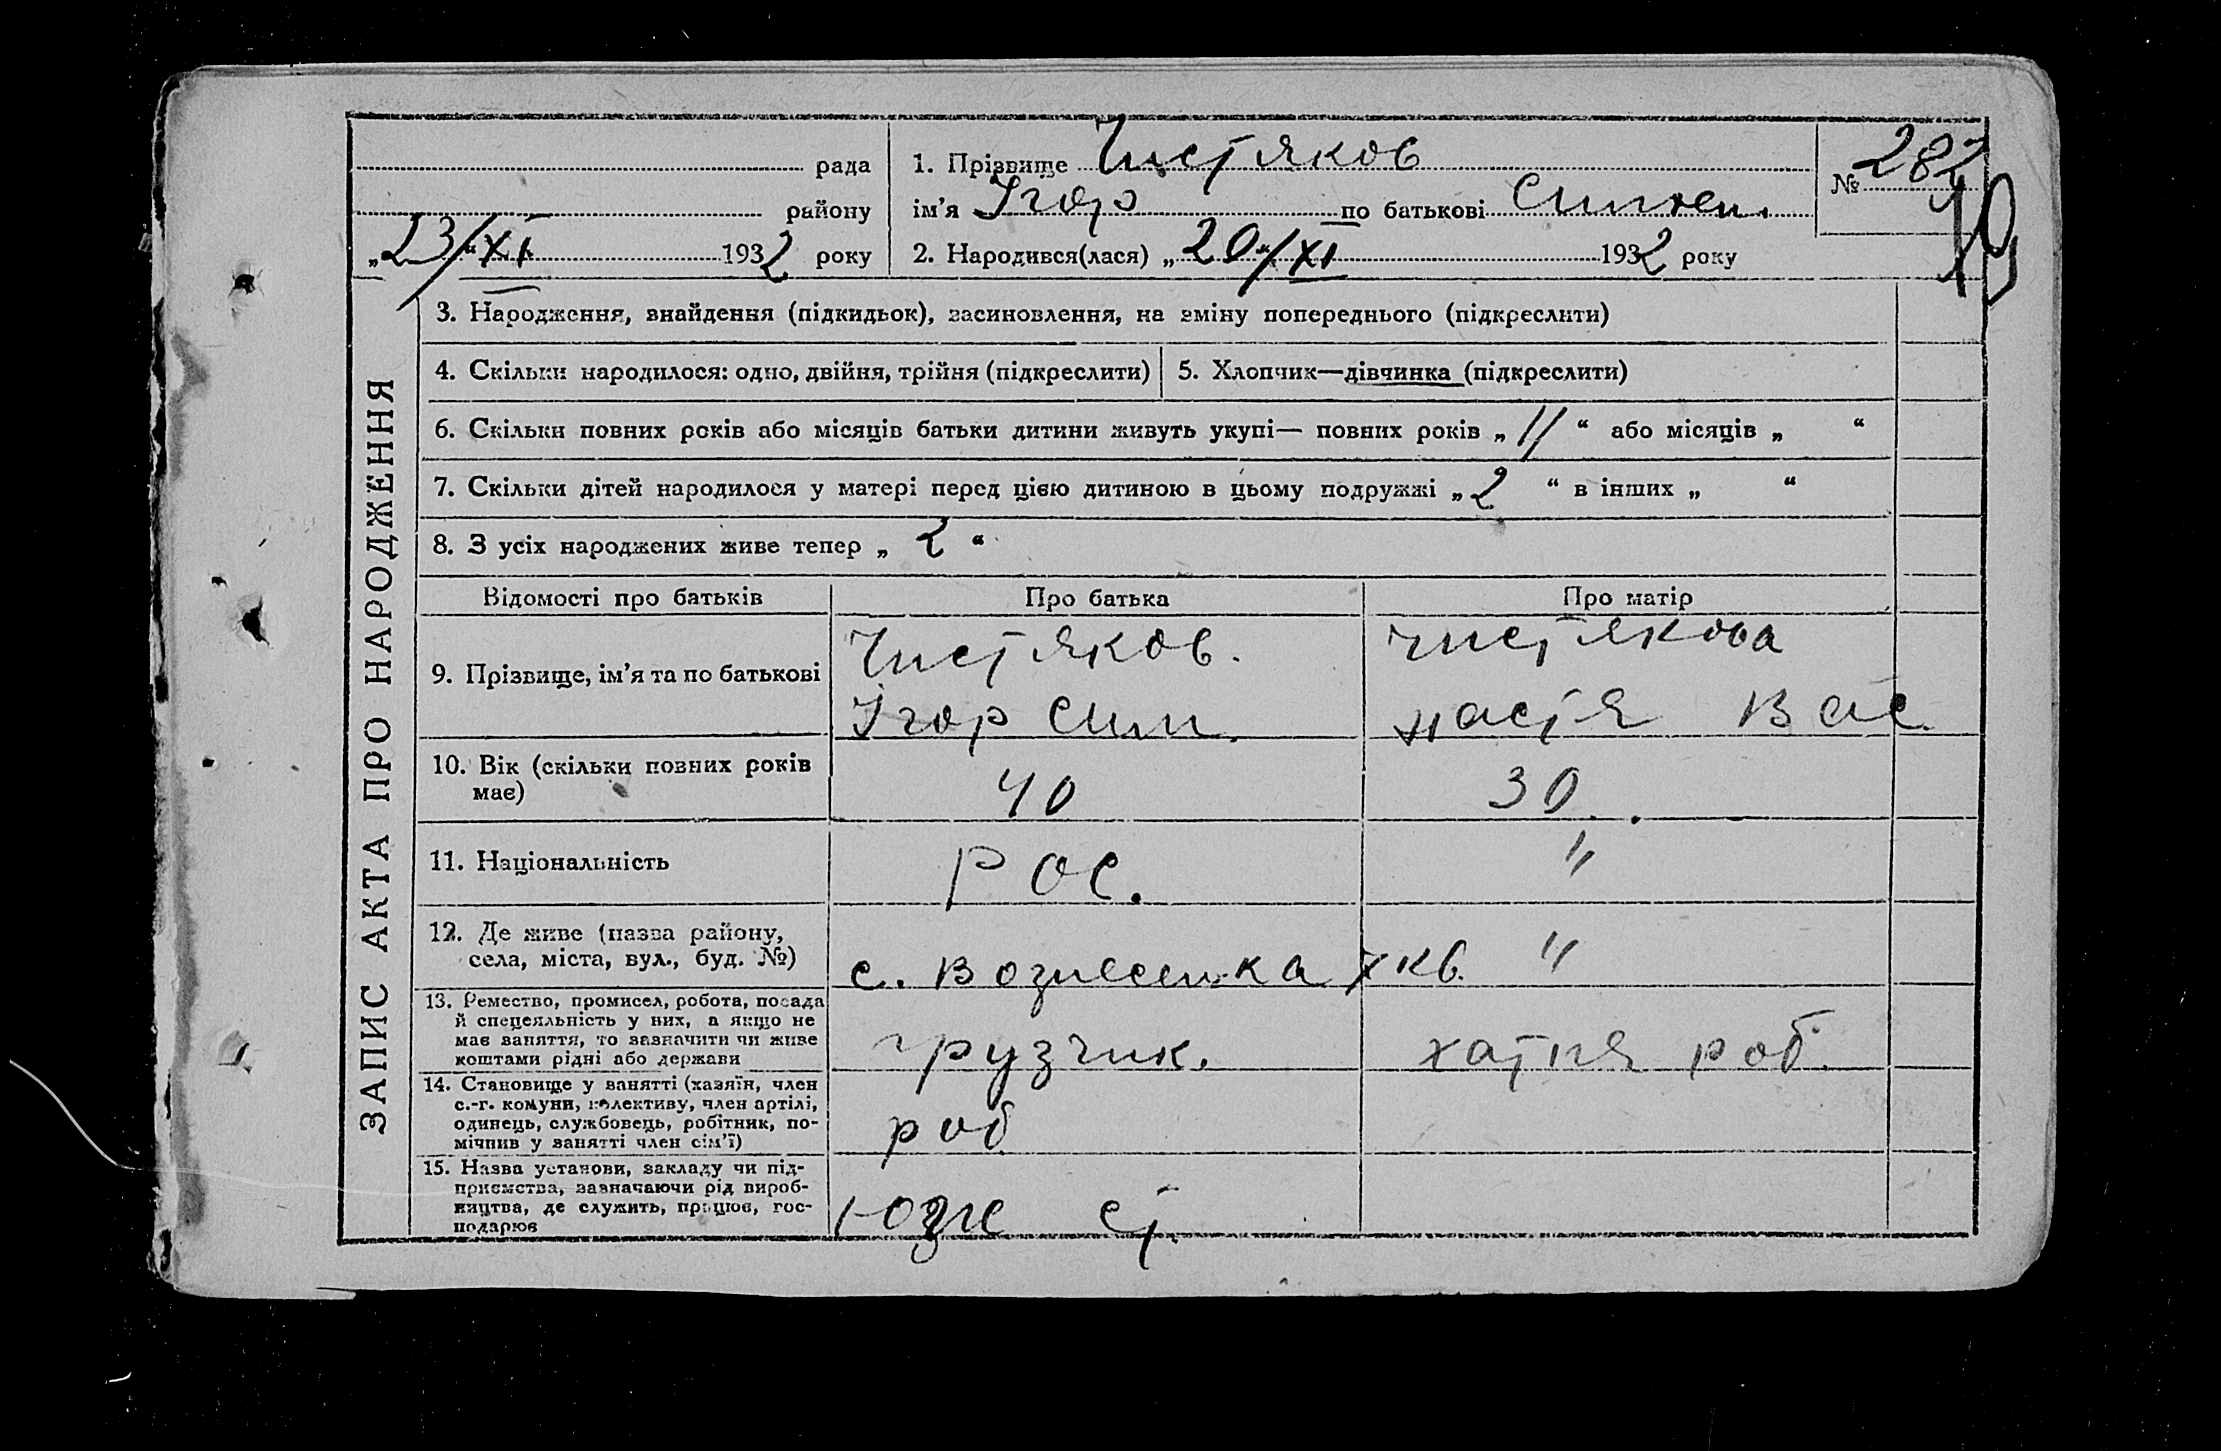 рада
району
„23/XI 1932 року
1. Прізвище Чистяков
ім’я Ігор по батькові
2. Народився(лася) „20“/XI 1932 року
№ 282
ЗАПИС АКТА ПРО НАРОДЖЕННЯ
3. Народження, знайдення (підкидьок), засиновлення, на зміну попереднього (підкреслити)
4. Скільки народилося: одно, двійня, трійня (підкреслити)
5. Хлопчик—дівчинка (підкреслити)
6. Скільки повних років або місяців батьки дитини живуть укупі— повних років „ 11 “ або місяців „ “
7. Скільки дітей народилося у матері перед цією дитиною в цьому подружжі „ 2 “ в інших „ “
8. З усіх народжених живе тепер „ 2 “
Відомості про батьків Про батька Про матір
9. Прізвище, ім’я та по батькові
Чистяков.
Ігор Сим.
Чистякова
Настя Вас.
10. Вік (скільки повних років
має)
40
30
11. Національність
Рос.
"
12. Де живе (назва району,
села, міста, вул., буд. №)
с. Вознесенка хкв.
"
13. Ремество, промисел, робота, посада
й спецеяльність у них, а якщо не
має заняття, то зазначити чи живе
коштами рідні або держави
грузчик.
хатня роб.
14. Становище у занятті (хазяїн, член
с.-г. комуни, колективу, член артілі,
одинець, службовець, робітник, по-
мічнив у занятті член сім’ї)
роб
15. Назва установи, закладу чи під-
приємства, зазначаючи рід вироб-
ництва, де служить, працює, гос-
подарює
ст.